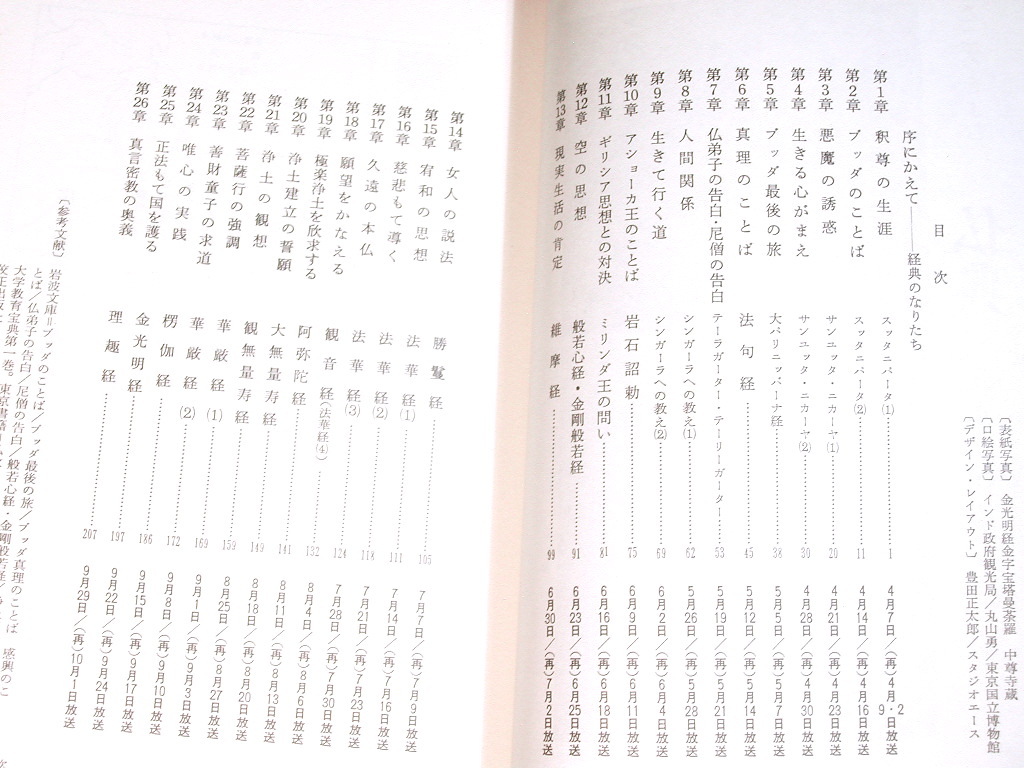 〔表紙写真〕 金光明経金字宝塔曼荼羅 中尊寺蔵
〔口絵写真〕 インド政府観光局／丸山勇／東京国立博物館
〔デザイン・レイアウト〕 豊田正太郎／スタジオエース
目次
序にかえて——経典のなりたち
第1章 釈尊の生涯 スッタニパータ(1)……1 4月7日／(再)4月2・9日放送
第2章 ブッダのことば スッタニパータ(2)……11 4月14日／(再)4月16日放送
第3章 悪魔の誘惑 サンユッタ・ニカーヤ(1)……20 4月21日／(再)4月23日放送
第4章 生きる心がまえ サンユッタ・ニカーヤ(2)……30 4月28日／(再)4月30日放送
第5章 ブッダ最後の旅 大パリニッバーナ経……38 5月5日／(再)5月7日放送
第6章 真理のことば 法句経……45 5月12日／(再)5月14日放送
第7章 仏弟子の告白・尼僧の告白 テーラガーター・テーリーガーター……53 5月19日／(再)5月21日放送
第8章 人間関係 シンガーラへの教え(1)……62 5月26日／(再)5月28日放送
第9章 生きて行く道 シンガーラへの教え(2)……69 6月2日／(再)6月4日放送
第10章 アショーカ王のことば 岩石詔勅……75 6月9日／(再)6月11日放送
第11章 ギリシア思想との対決 ミリンダ王の問い……81 6月16日／(再)6月18日放送
第12章 空の思想 般若心経・金剛般若経……91 6月23日／(再)6月25日放送
第13章 現実生活の肯定 維摩経……99 6月30日／(再)7月2日放送
第14章 女人の説法 勝鬘経……105 7月7日／(再)7月9日放送
第15章 宥和の思想 法華経(1)……111 7月14日／(再)7月16日放送
第16章 慈悲もて導く 法華経(2)……118 7月21日／(再)7月23日放送
第17章 久遠の本仏 法華経(3)……124 7月28日／(再)7月30日放送
第18章 願望をかなえる 観音経(法華経(4))……132 8月4日／(再)8月6日放送
第19章 極楽浄土を欣求する 阿弥陀経……141 8月11日／(再)8月13日放送
第20章 浄土建立の誓願 大無量寿経……149 8月18日／(再)8月20日放送
第21章 浄土の観想 観無量寿経……159 8月25日／(再)8月27日放送
第22章 菩薩行の強調 華厳経(1)……169 9月1日／(再)9月3日放送
第23章 善財童子の求道 華厳経(2)……172 9月8日／(再)9月10日放送
第24章 唯心の実践 楞伽経……186 9月15日／(再)9月17日放送
第25章 正法もて国を護る 金光明経……197 9月22日／(再)9月24日放送
第26章 真言密教の奥義 理趣経……207 9月29日／(再)10月1日放送
〔参考文献〕 岩波文庫＝ブッダのことば／ブッダ最後の旅／ブッダ真理のことば 感興のこ
とば／仏弟子の告白／尼僧の告白／般若心経・金剛般若経／
大学教育宝典第一巻。東京書籍